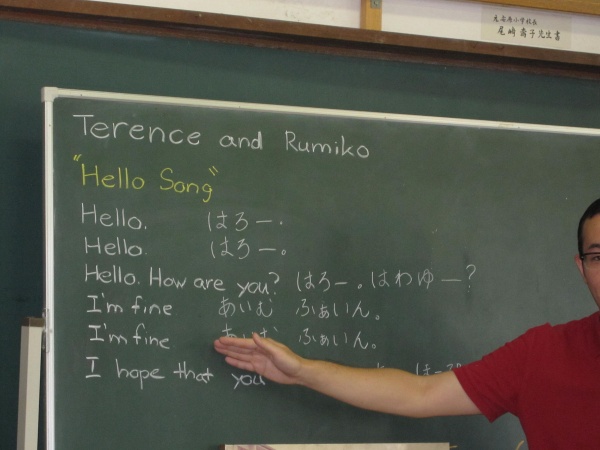 元
小学校長
尾崎壽子先生書
Terence and Rumiko
"Hello Song"
Hello. はろー.
Hello. はろー。
Hello. How are you? はろー。はわゆー?
I'm fine あいむ ふぁいん。
I'm fine あいむ ふぁいん。
I hope that you